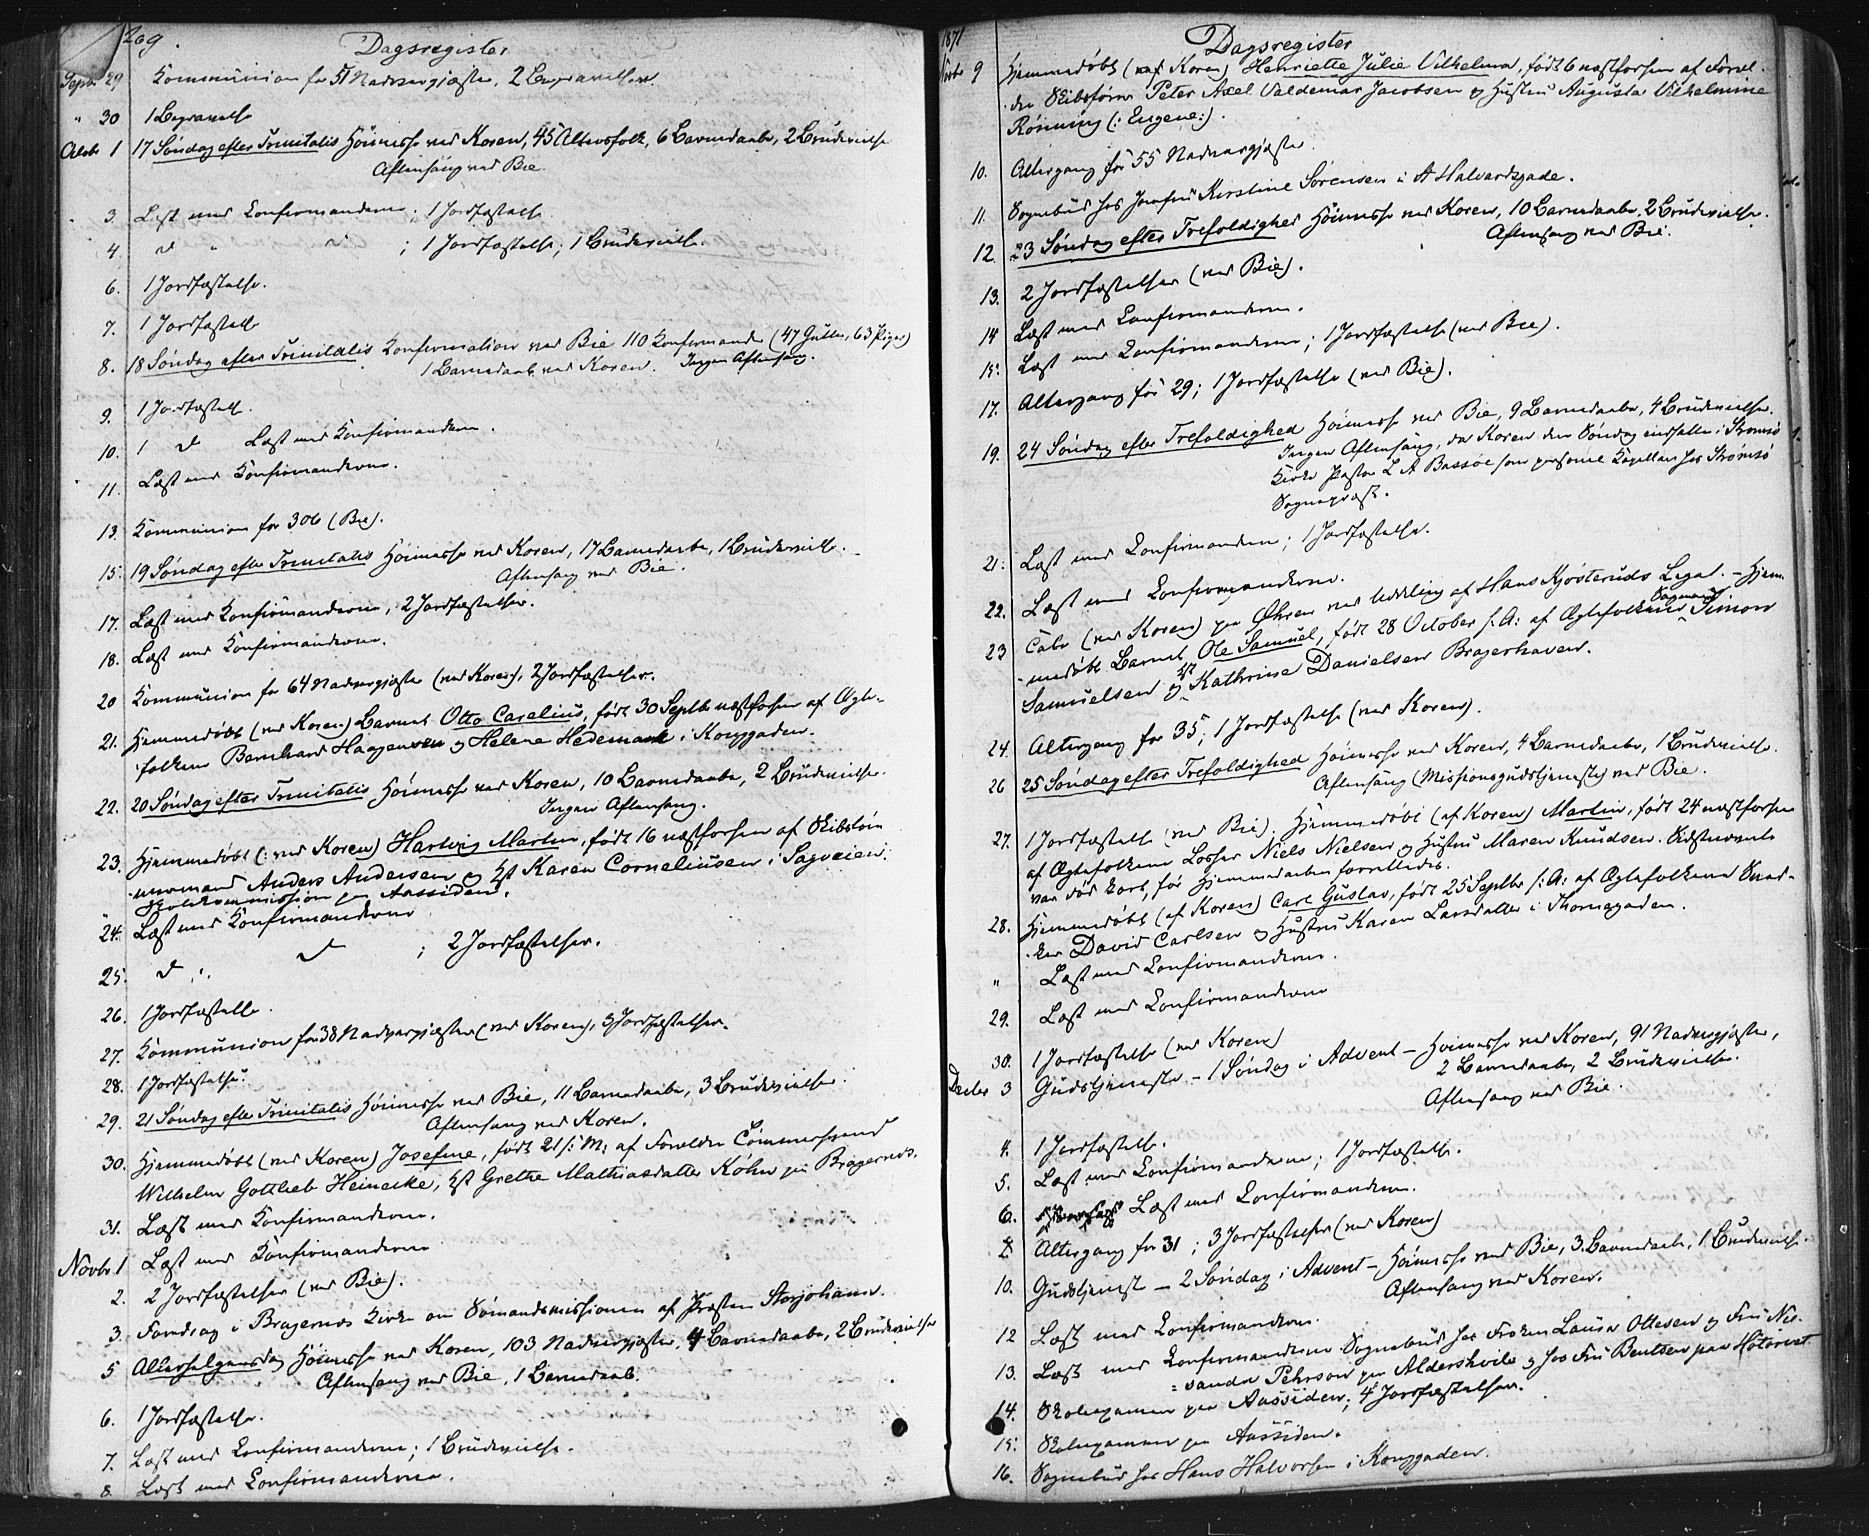 209.
Dagsregister
Septbr 29 Kommunion for 51 Nadvergjæster, 2 Begravelser.
" 30 1 Begravelse
Octobr 1 17 Søndag efter Trinitatis Höimesse ved Koren, 45 Altersfolk, 6 Barnedaabe, 2 Brudevielse
Aftensang ved Bie.
3. Læst med Confirmanderne; 1 Jordfæstelse.
4 d " d ; 1 Jordfæstelse; 1 Brudevielse.
6. 1 Jordfæstelse.
7. 1 Jordfæstelse
8. 18 Søndag efter Trinitatis Konfirmation ved Bie 110 Konfirmander (47 Gutter, 63 Piger)
1 Barnedaab ved Koren. Ingen Aftensang.
9. 1 Jordfæstelse.
10. 1 d Læst med Konfirmanderne.
11. Læst med Konfirmanderne.
13. Kommunion for 306 (Bie).
15. 19 Søndag efter Trinitatis Höimesse ved Koren, 17 Barnedaabe, 1 Brudevielse.
Aftensang ved Bie.
17. Læst med Konfirmanderne, 2 Jordfæstelser.
18. Læst med Konfirmanderne.
20 Kommunion for 64 Nadvergjæster (ved Koren), 2 Jordfæstelser.
21. Hjemmedøbt (ved Koren) Barnet Otto Carelius, født 30 Septbr næstforhen af Ægte-
folkene Bernhard Haagensen og Helene Hedemark i Konggaden.
22. 20 Søndag efter Trinitatis Höimesse ved Koren, 10 Barnedaabe, 2 Brudevielse.
Ingen Aftensang.
23. Hjemmedøbt (: ved Koren) Hartvig Martin, født 16 næstforhen af Skibstøm-
mermand Anders Andersen og Hst Karen Corneliusen i Sagveien.
Skolekommission paa Aassiden.
24. Læst med Konfirmanderne
25. d ". d ; 2 Jordfæstelser.
26. 1 Jordfæstelse.
27. Kommunion for 38 Nadvergjæster (ved Koren), 3 Jordfæstelser.
28. 1 Jordfæstelse.
29. 21 Søndag efter Trinitatis Höimesse ved Bie, 11 Barnedaabe, 3 Brudevielse.
Aftensang ved Koren.
30. Hjemmedøbt (ved Koren) Josefine, født 21 s: M: af Forældre Tömmermand
Wilhelm Gottlieb Heinecke, Hst Grethe Mathiasdatter Köhn paa Bragernæs.
31. Læst med Konfirmanderne.
Novbr 1 Læst med Konfirmanderne
2. 2 Jordfæstelser (ved Bie).
3. Foredrag i Bragernæs Kirke om Sømandsmissionen af Præsten Storjohann.
5 Allehelgensdag Höimesse ved Koren, 103 Nadvergjæster, 4 Barnedaabe, 2 Brudevielser
Aftensang ved Bie, 1 Barnedaab.
6. 1 Jordfæstelse.
7. Læst med Confirmanderne; 1 Brudevielse.
8. Læst med Confirmanderne.
1871
Dagsregister
Novbr 9 Hjemmedøbt (ved Koren) Henriette Julie Vilhelma, født 6 næstforhen af Foræl-
dre Skibsfører Peter Axel Valdemar Jacobsen og Hustru Augusta Vilhelmine
Rönning (: Eugene:).
10. Altergang for 55 Nadvergjæster.
11. Sognebud hos Jomfru Kirstine Sörensen i A Halvorsgade.
12. 23 Søndag efter Trefoldighed Höimesse ved Koren, 10 Barnedaabe, 2 Brudevielse.
Aftensang ved Bie.
13. 2 Jordfæstelser (ved Bie).
14 Læst med Confirmanderne.
15. Læst med Confirmanderne; 1 Jordfæstelse (ved Bie).
17. Altergang for 29; 1 Jordfæstelse (ved Bie).
19. 24 Søndag efter Trefoldighed Höimesse ved Bie, 9 Barnedaabe, 4 Brudevielse.
Ingen Aftensang, da Koren den Søndag indsatte i Strömsö
Kirke Pastor L A Bassöe som personel Kapellan hos Strömsö
Sognepræst.
21. Læst med Confirmanderne; 1 Jordfæstelse.
22. Læst med Confirmanderne.
23 Tale (ved Koren) paa Øhren ved Uddeling af Hans Kjösteruds Legat. – Hjem-
medöbt Barnet Ole Samuel, født 28 October s. A: af Ægtefolkene Sagmand Simon
Samuelsen og Hst Kathrine Danielsen Bragerhaven.
24. Altergang for 35; 1 Jordfæstelse (ved Koren).
26 25 Søndag efter Trefoldighed Höimesse ved Koren, 4 Barnedaabe, 1 Brudevielse.
Aftensang (Missionsgudstjeneste) ved Bie.
27. 1 Jordfæstelse (ved Bie). Hjemmedöbt (af Koren) Martin, født 24 næstforhen
af Ægtefolkene Losser Niels Nielsen og Hustru Maren Knudsen. Sidstnævnte
var död kort, för Hjemmedaaben forrettedes.
28. Hjemmedöbt (af Koren) Carl Gustav, født 25 Septbr s: A: af Ægtefolkene Sned-
ker David Carlsen og Hustru Karen Larsdatter i Thornegaden.
" Læst med Confirmanderne.
29. Læst med Confirmanderne
30. 1 Jordfæstelse (ved Koren)
Decbr 3 Gudstjeneste – 1 Søndag i Advent – Höimesse ved Koren, 91 Nadvergjæster,
2 Barnedaabe, 2 Brudevielse.
Aftensang ved Bie.
4. 1 Jordfæstelse.
5. Læst med Confirmanderne; 1 Jordfæstelse.
6. Læst med Confirmanderne.
8. Altergang for 31; 3 Jordfæstelser (ved Koren)
10. Gudstjeneste – 2 Søndag i Advent – Höimesse ved Bie, 3 Barnedaabe, 1 Brudevielse.
Aftensang ved Koren.
12 Læst med Confirmanderne.
13. Læst med Confirmanderne Sognebud hos Fröken Laura Ottesen og Fru Nis-
sanda Pehrson paa Aldershvile og hos Fru Bentsen paa Hötorvet
14. Skoleexamen paa Aassiden; 4 Jordfæstelser.
15. Skoleexamen paa Aassiden.
16. Sognebud hos Hans Halvorsen i Konggaden.